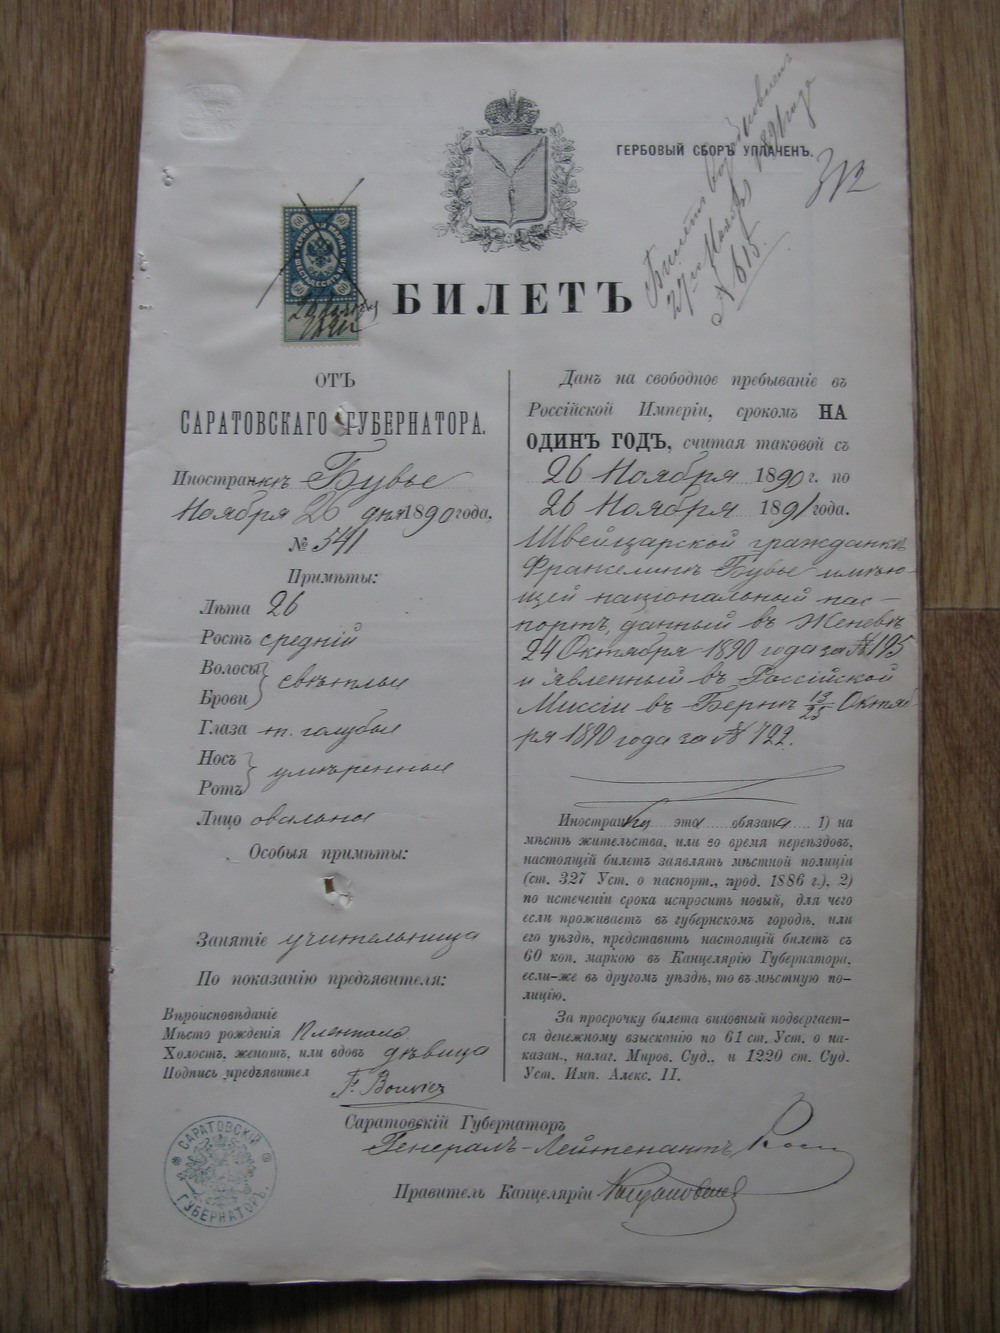 ГЕРБОВЫЙ СБОРЪ УПЛАЧЕНЪ.
312
Билетъ возобновленъ
27го Ноября 1891 года
№ 615.
60 60
ГЕРБОВАЯ МАРКА
ШЕСТЬДЕСЯТЪ КОП.
60 60
БИЛЕТЪ
ОТЪ
САРАТОВСКАГО ГУБЕРНАТОРА.
Иностранкѣ Бувье
Ноября 26 дня 1890 года.
№ 541
Примѣты:
Лѣта 26
Ростъ средній
Волосы
Брови свѣтлые
Глаза т. голубые
Носъ
Ротъ умѣренные
Лицо овальное
Особыя примѣты:
Занятіе учительница
По показанію предъявителя:
Вѣроисповѣданіе
Мѣсто рожденія
Холостъ, женатъ, или вдовъ дѣвица
Подпись предъявителя
F. Bouvier
Данъ на свободное пребываніе въ
Россійской Имперіи, срокомъ НА
ОДИНЪ ГОДЪ, считая таковой съ
26 Ноября 1890 г. по
26 Ноября 1891 года.
Швейцарской гражданкѣ
Франселинѣ Бувье имѣю-
щей національный пас-
портъ, данный въ Женевѣ
24 Октября 1890 года за № 195
и явленный въ Россійской
Миссіи въ Бернѣ 13/25 Октяб-
ря 1890 года за № 722.
Иностранка эта обязана 1) на
мѣстѣ жительства, или во время переѣздовъ,
настоящій билетъ заявлять мѣстной полиціи
(ст. 327 Уст. о паспорт., прод. 1886 г.), 2)
по истеченіи срока испросить новый, для чего
если проживаетъ въ губернскомъ городѣ, или
его уѣздѣ, представить настоящій билетъ съ
60 коп. маркою въ Канцелярію Губернатора,
если-же въ другомъ уѣздѣ, то въ мѣстную по-
лицію.
За просрочку билета виновный подвергает-
ся денежному взысканію по 61 ст. Уст. о на-
казан., налаг. Миров. Суд., и 1220 ст. Суд.
Уст. Имп. Алекс. II.
Саратовскій Губернаторъ
Генералъ-Лейтенантъ
Правитель Канцеляріи
САРАТОВСКІЙ
ГУБЕРНАТОРЪ.